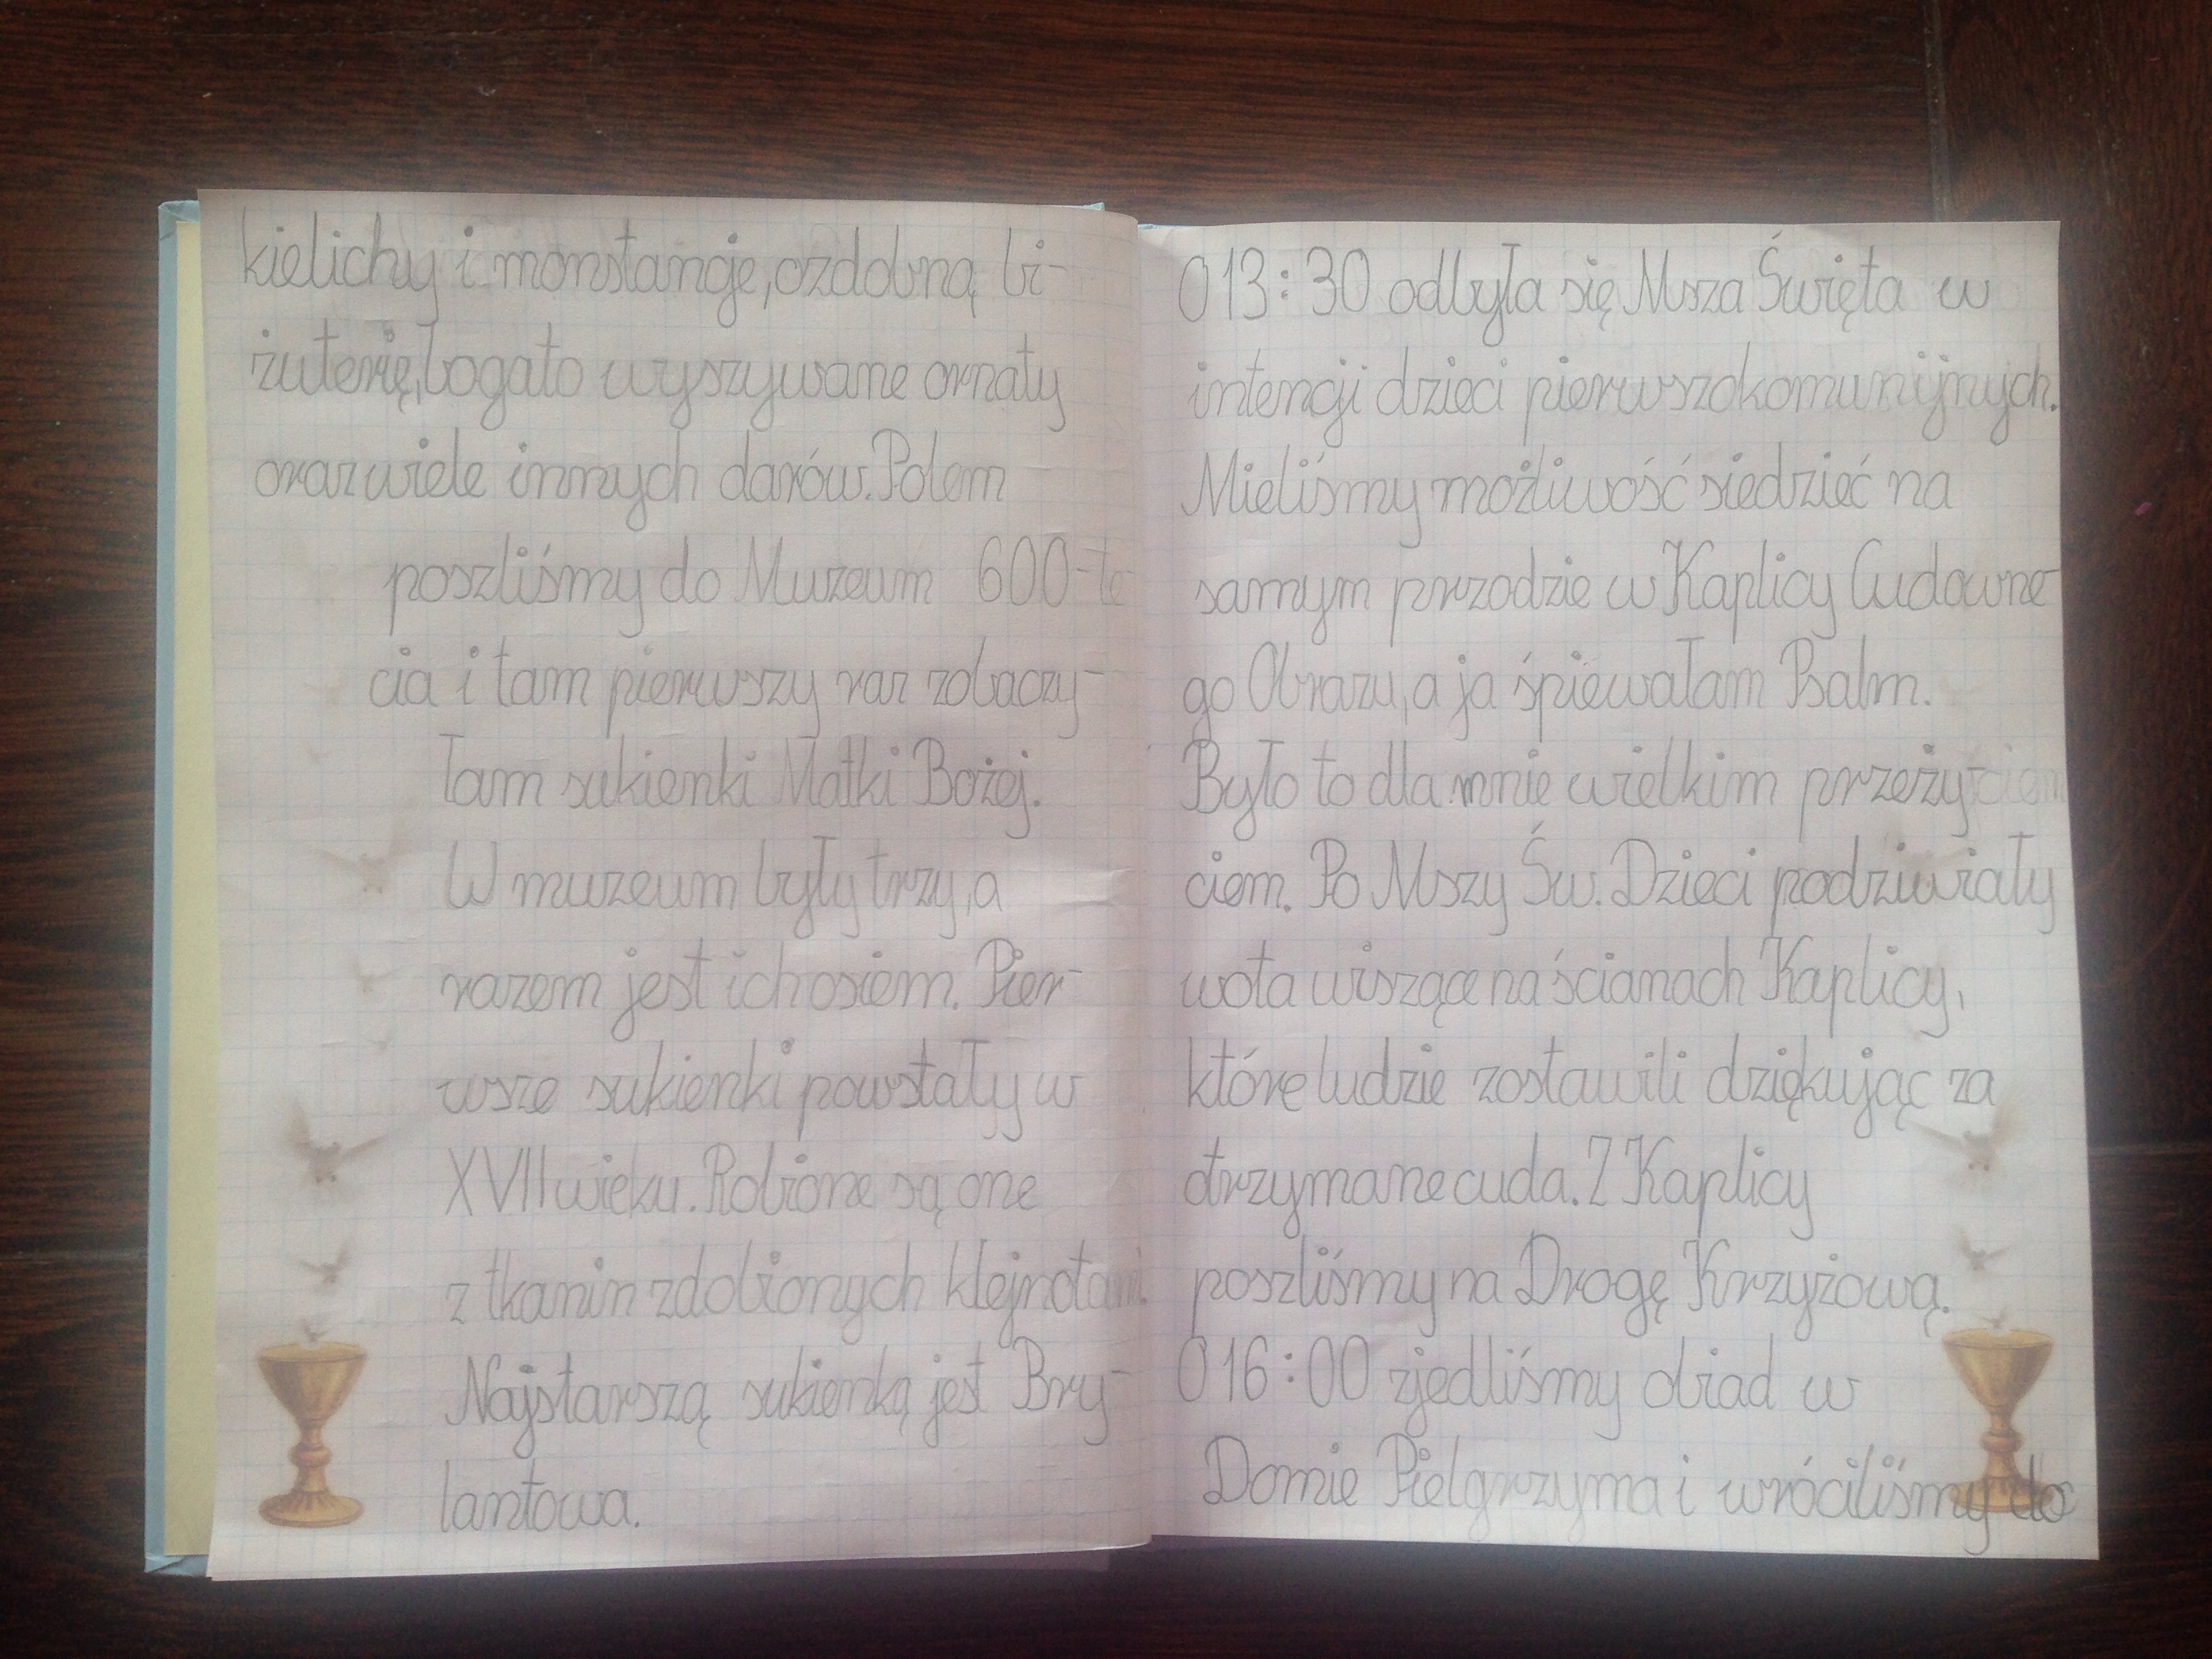 kielichy i monstancje, ozdobną bi-
żuterię, bogato wyszywane ornaty
oraz wiele innych darów. Potem
poszliśmy do Muzeum 600-le-
cia i tam pierwszy raz zobaczy-
łam sukienki Matki Bożej.
W muzeum były trzy, a
razem jest ich osiem. Pier-
wsze sukienki powstały w
XVII wieku. Robione są one
z tkanin zdobionych klejnotami.
Najstarszą sukienką jest Bry-
lantowa.
O 13:30 odbyła się Msza Święta w
intencji dzieci pierwszokomunijnych.
Mieliśmy możliwość siedzieć na
samym przodzie w Kaplicy Cudowne-
go Obrazu, a ja śpiewałam Psalm.
Było to dla mnie wielkim przeży-
ciem. Po Mszy Św. Dzieci podziwiały
wota wiszące na ścianach Kaplicy,
które ludzie zostawili dziękując za
otrzymane cuda. Z Kaplicy
poszliśmy na Drogę Krzyżową.
O 16:00 zjedliśmy obiad w
Domie Pielgrzyma i wróciliśmy do